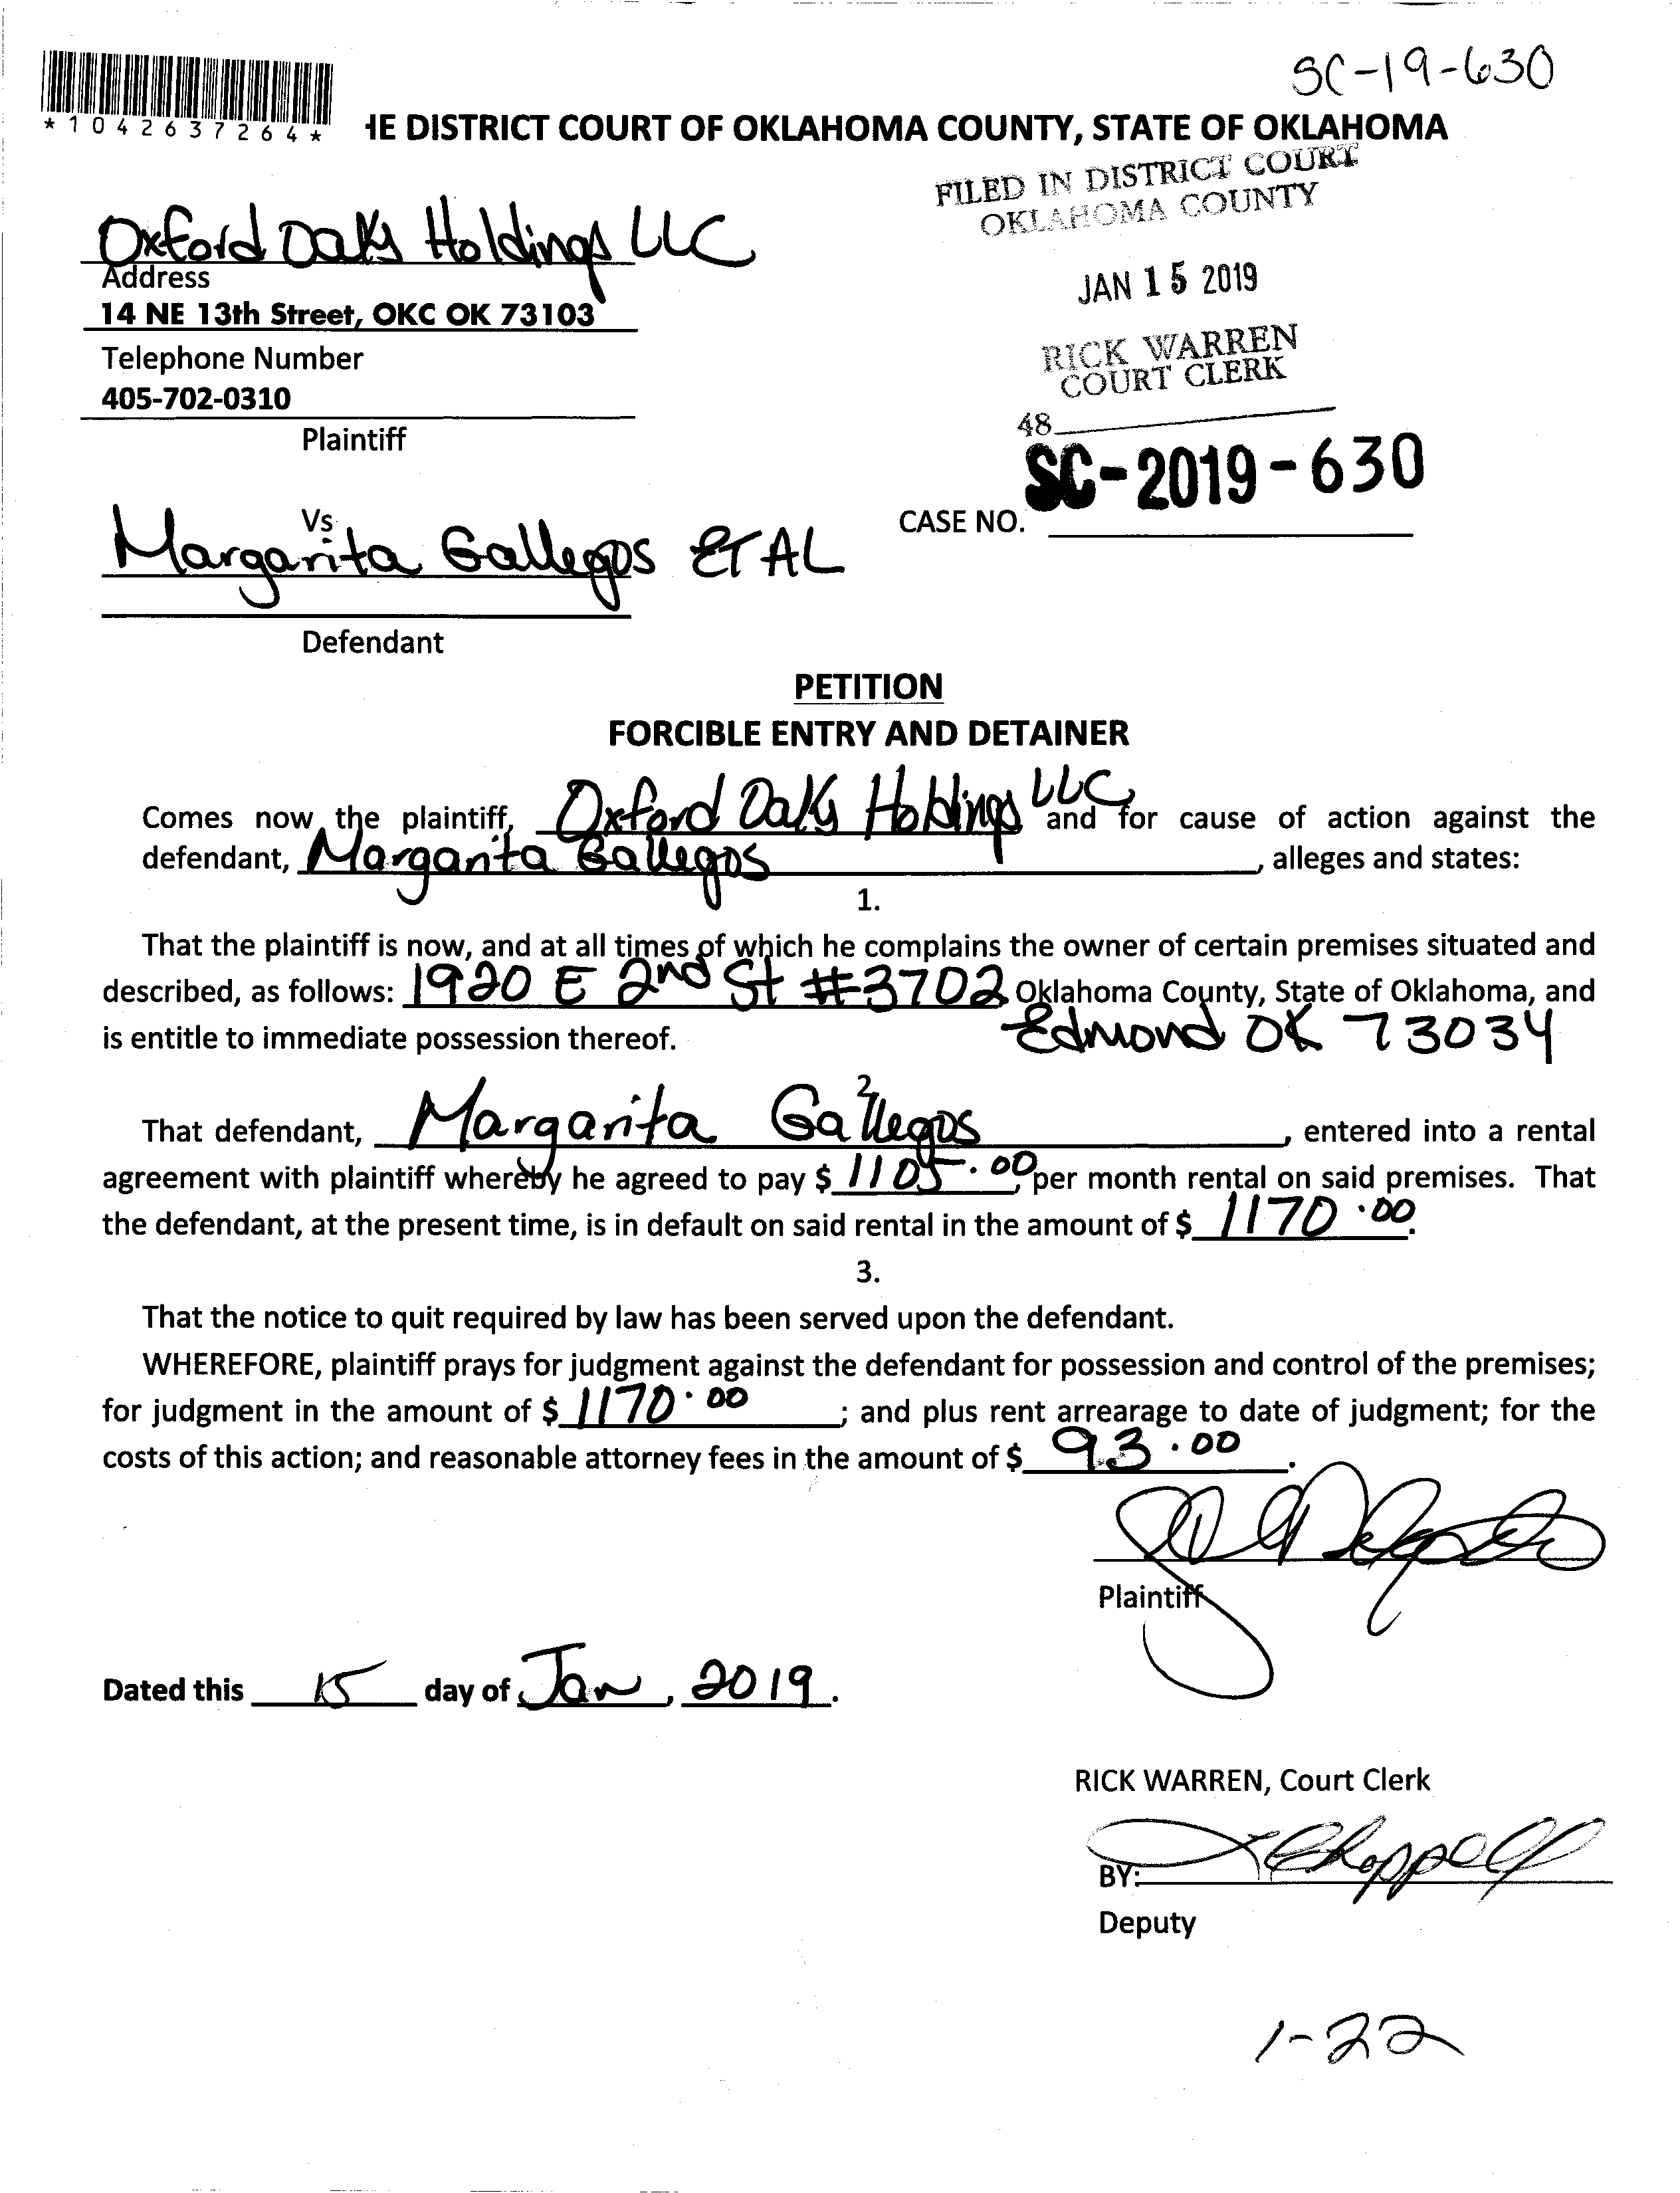 SC-19-630
*1042637264*
HE DISTRICT COURT OF OKLAHOMA COUNTY, STATE OF OKLAHOMA
FILED IN DISTRICT COURT
OKLAHOMA COUNTY
Oxford Oaks Holdings LLC
Address
14 NE 13th Street, OKC OK 73103
JAN 15 2019
Telephone Number
405-702-0310
RICK WARREN
COURT CLERK
48
Plaintiff
SC-2019-630
CASE NO.
Vs
Margarita Gallegos ET AL
Defendant
PETITION
FORCIBLE ENTRY AND DETAINER
Comes now the plaintiff, Oxford Oaks Holdings LLC and for cause of action against the
defendant, Margarita Gallegos, alleges and states:
1.
That the plaintiff is now, and at all times of which he complains the owner of certain premises situated and
described, as follows: 1920 E 2nd St #3702 Oklahoma County, State of Oklahoma, and
is entitle to immediate possession thereof. Edmond OK 73034
2
That defendant, Margarita Gallegos, entered into a rental
agreement with plaintiff whereby he agreed to pay $ 1105.00, per month rental on said premises. That
the defendant, at the present time, is in default on said rental in the amount of $ 1170.00.
3.
That the notice to quit required by law has been served upon the defendant.
WHEREFORE, plaintiff prays for judgment against the defendant for possession and control of the premises;
for judgment in the amount of $ 1170.00; and plus rent arrearage to date of judgment; for the
costs of this action; and reasonable attorney fees in the amount of $ 93.00.
Plaintiff
Dated this 15 day of Jan, 2019.
RICK WARREN, Court Clerk
BY: Chappell
Deputy
1-22